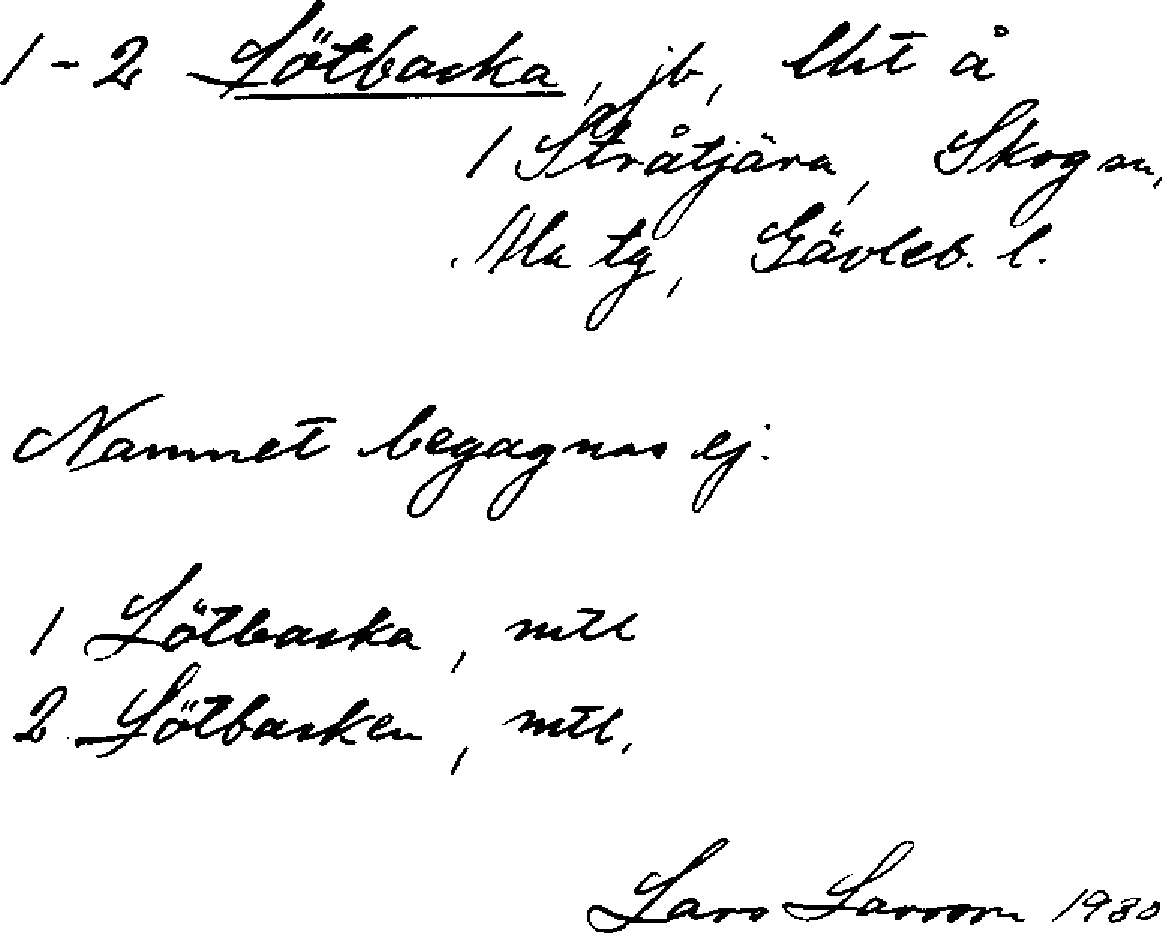 1-2 Lötbacka, jb, lht å
1 Stråtjära, Skog sn,
Ala tg, Gävleb. l.
Namnet begagnas ej.
1 Lötbacka, mtl
2 Lötbacken, mtl,
Lars Larsson 1930